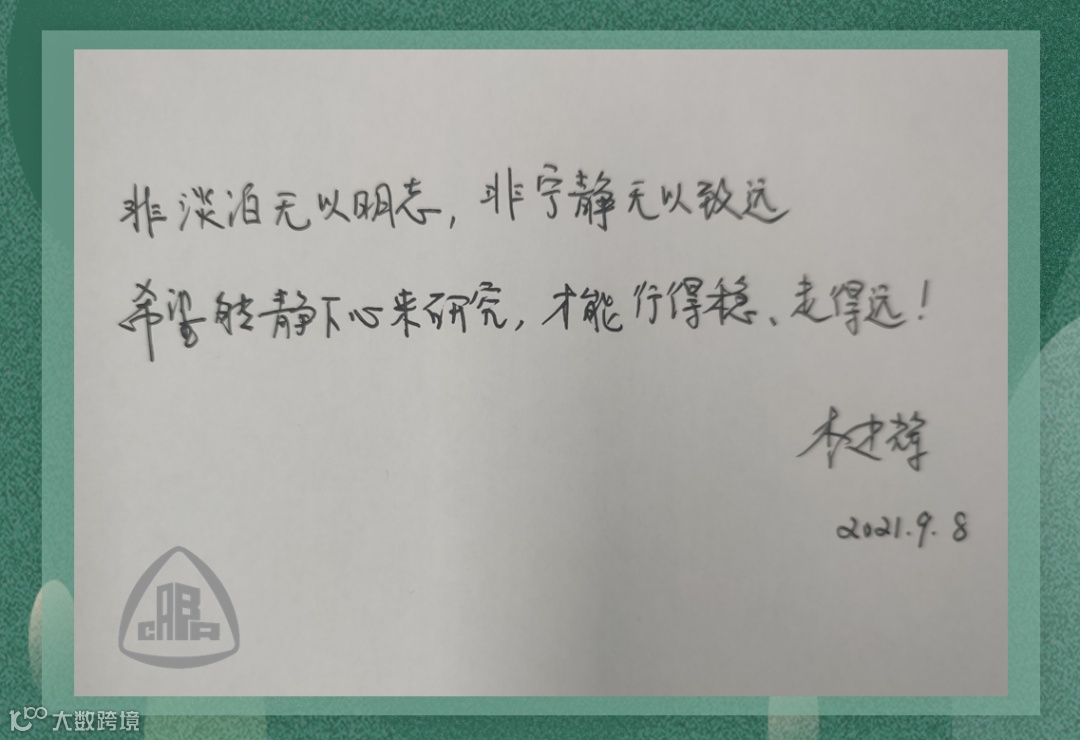 非淡泊无以明志，非宁静无以致远
希望能静下心来研究，才能行得稳、走得远！
2021.9.8
CABPA
大数跨境